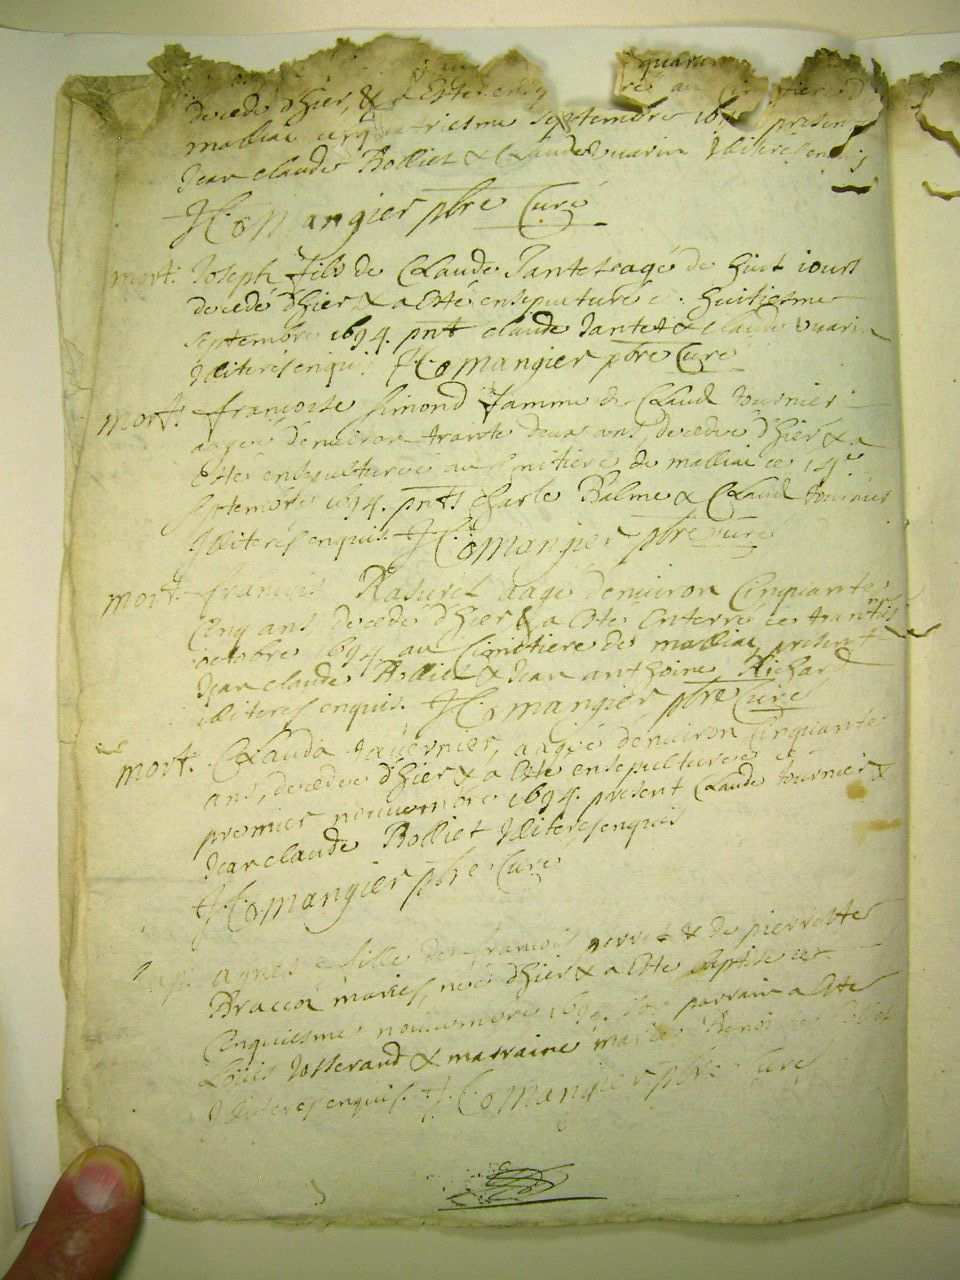 quaran
decedé d'hier, & a esté ense au Cimitiere d
malliac ce quatriesme septembre 169 present
Jean claude Rolliet & Claude vuarin Illiteres enquis
J Comangier pbre Curé
mort. Joseph fils de Claude Jantet aagé de huit iours
decedé d'hier & a esté ensepulturé ce huitiesme
septembre 1694. pnt claude Jantet & claude vuarin
Illiteres enquis J Comangier pbre Curé
mort. francoise Simond famme de Claud tournier
aagée d'enuiron trante deux ans, decedée d'hier & a
esté ensepulturée au Cimitiere de malliac ce 14e
septembre 1694. pnts charle Balme & Claud tournier
Illiteres enquis. J Comangier pbre Curé
mort. francois Rasurel aagé d'enuiron Cinquante
Cinq ans decedé d'hier & a esté enterré ce
octobre 1694 au Cimitiere de malliac present
Jean claude Rolliet & Jean anthoine Richard
illiteres enquis. J Comangier pbre Curé
mort. Clauda tauernier, aagée d'enuiron Cinquante
ans, decedée d'hier & a esté ensepulturée ce
premier nouuembre 1694. present Claude tournier &
Jean claude Rolliet Illiteres enquis
J Comangier pbre Curé
agnes fille de francois & de pierrette
Braccoz mariés, née d'hier & a esté baptisée ce
Cinquiesme nouuembre 1694. parrain a esté
Louis Josserand & marraine
Illiteres enquis. J Comangier pbre Curé